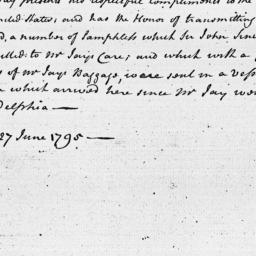 Jay presents his respectful compliments to the
nited States; and has the Honor of transmitting
d, a number of Pamphlets which Sir John Sinc
itted to Mr Jays Care; and which with a
s of Mr Jays Baggage, were sent in a Vess
which arrived here since Mr Jay wen
delphia —
27 June 1795 —